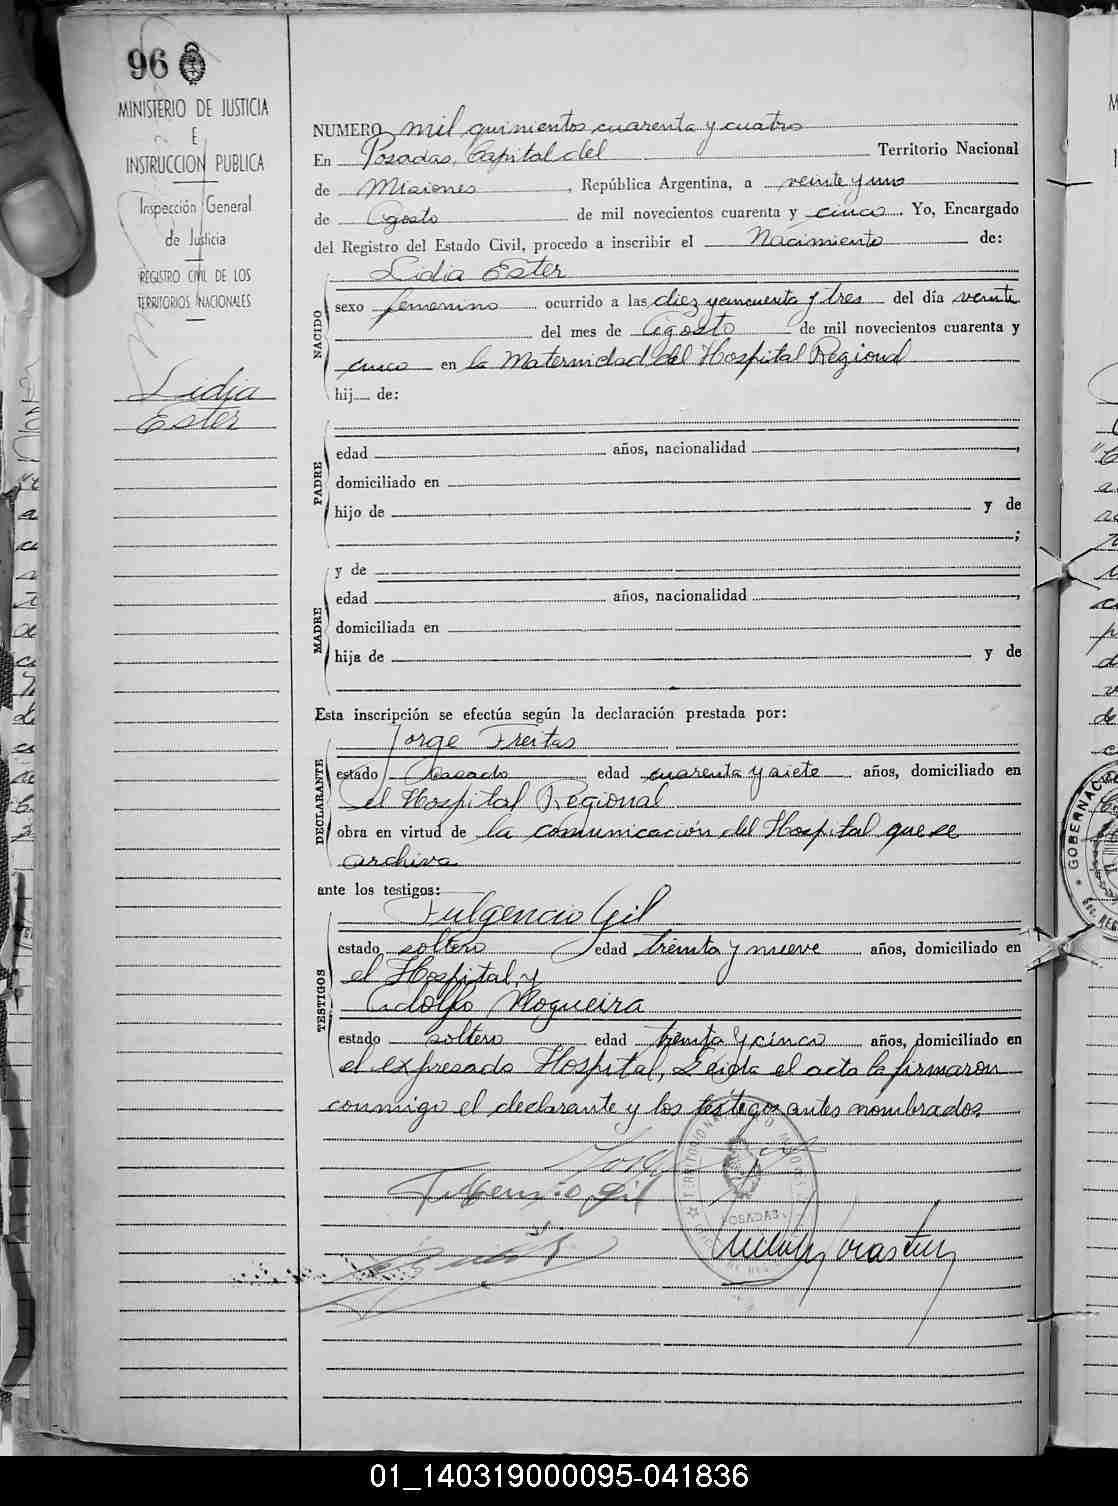 96
MINISTERIO DE JUSTICIA
E
INSTRUCCION PUBLICA
Inspección General
de Justicia
REGISTRO CIVIL DE LOS
TERRITORIOS NACIONALES
Lidia
Ester
NUMERO mil quinientos cuarenta y cuatro
En Posadas, Capital del Territorio Nacional
de Misiones, República Argentina, a veinte y uno
de Agosto de mil novecientos cuarenta y cinco. Yo, Encargado
del Registro del Estado Civil, procedo a inscribir el Nacimiento de:
NACIDO
Lidia Ester
sexo femenino ocurrido a las diez y cincuenta y tres del día veinte
del mes de Agosto de mil novecientos cuarenta y
cinco en la Maternidad del Hospital Regional
hij de:
PADRE
edad años, nacionalidad ,
domiciliado en
hijo de y de
;
MADRE
y de
edad años, nacionalidad ,
domiciliada en
hija de y de
Esta inscripción se efectúa según la declaración prestada por:
DECLARANTE
Jorge Freitas
estado Casado edad cuarenta y siete años, domiciliado en
el Hospital Regional
obra en virtud de la comunicación del Hospital que se
archiva
ante los testigos:
TESTIGOS
Fulgencio Gil
estado soltero edad treinta y nueve años, domiciliado en
el Hospital, y
Adolfo Nogueira
estado soltero edad treinta y cinco años, domiciliado en
el expresado Hospital, Leída el acta la firmaron
conmigo el declarante y los testigos antes nombrados
Fulgencio Gil
POSADAS
GOBERNACI
01_140319000095-041836